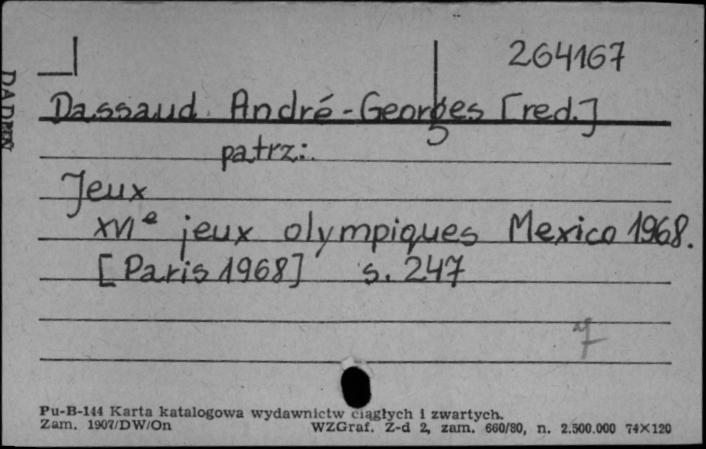 264167
Dassaud André-Georges [red.]
patrz:
Jeux
XVIe jeux olympiques Mexico 1968.
[Paris 1968] s. 247
Pu-B-144 Karta katalogowa wydawnictw ciągłych i zwartych.
Zam. 1907/DW/On WZGraf. Z-d 2, zam. 660/80, n. 2.500.000 74×120